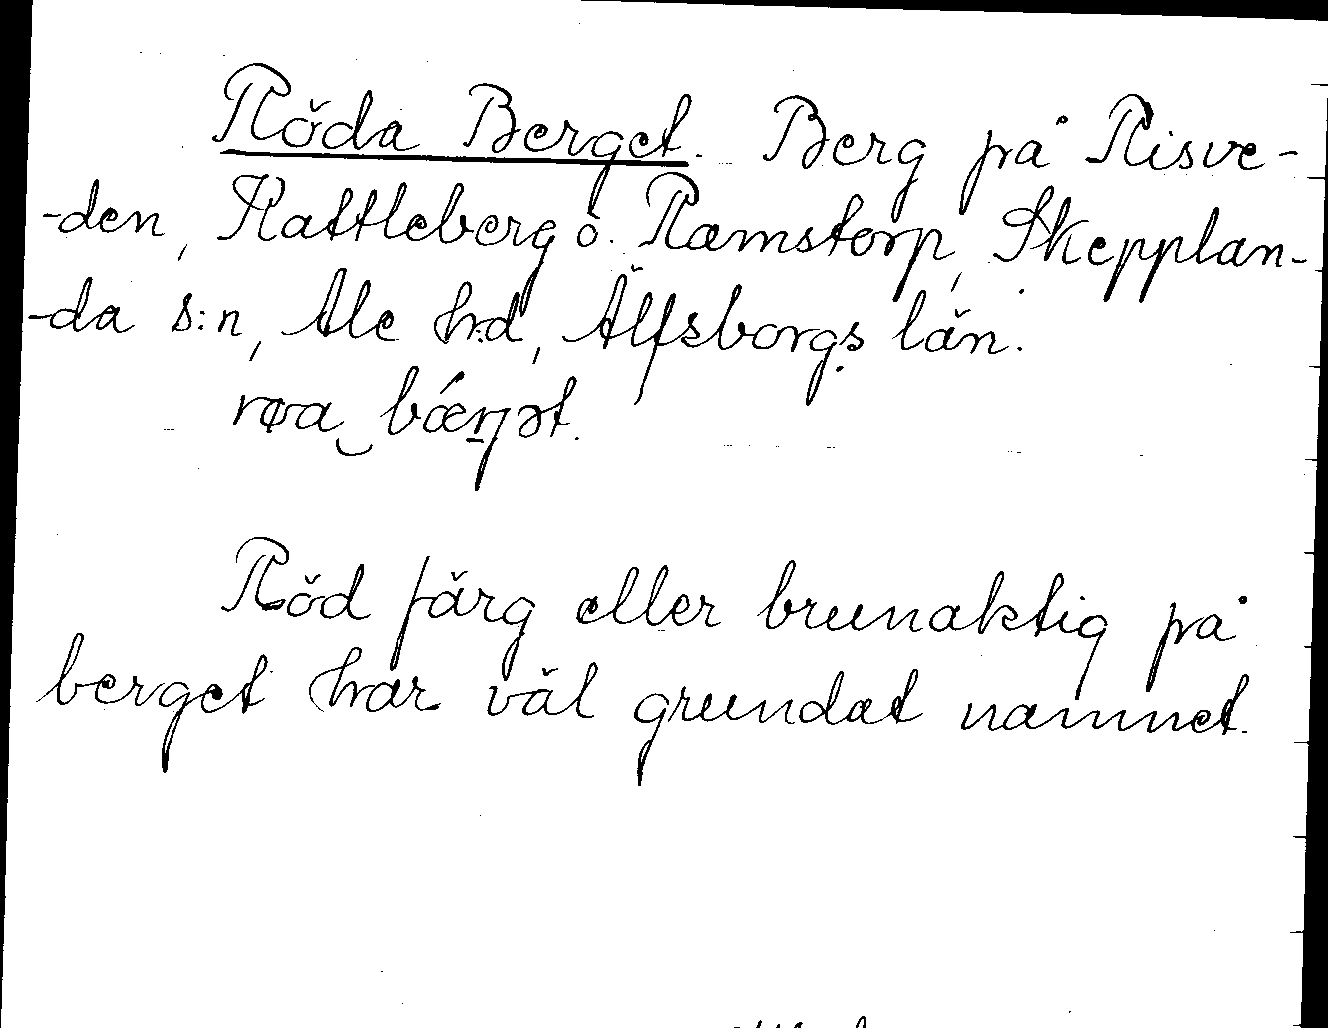 Röda Berget. Berg på Risve-
-den, Kattleberg o. Ramstorp, Skepplan-
-da s:n, Ale h:d, Älfsborgs län.
Röd färg eller brunaktig på
berget har väl grundat namnet.